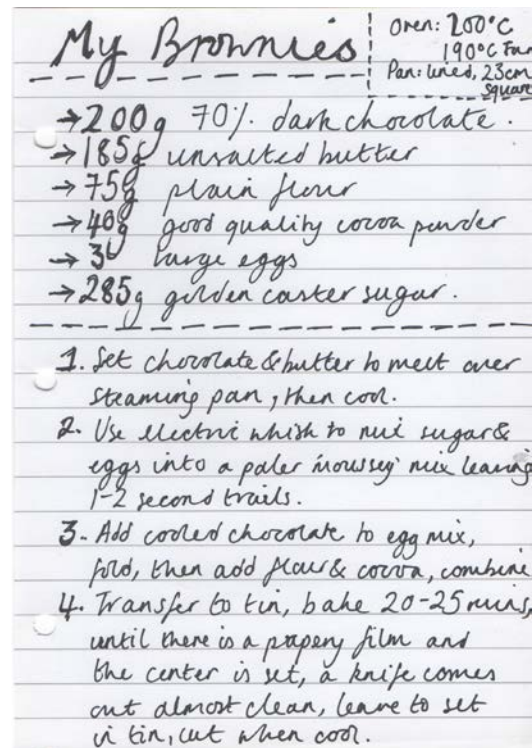 My Brownies
Oven: 200°C
190°C Fan
Pan: lined, 23cm
square
→ 200g 70% dark chocolate.
→ 185g unsalted butter
→ 75g plain flour
→ 40g good quality cocoa powder
→ 3 large eggs
→ 285g golden caster sugar.
1. Set chocolate & butter to melt over
steaming pan, then cool.
2. Use electric whisk to mix sugar &
eggs into a paler 'moussey' mix leaving
1-2 second trails.
3. Add cooled chocolate to egg mix,
fold, then add flour & cocoa, combine
4. Transfer to tin, bake 20-25 mins,
until there is a papery film and
the center is set, a knife comes
out almost clean, leave to set
in tin, cut when cool.